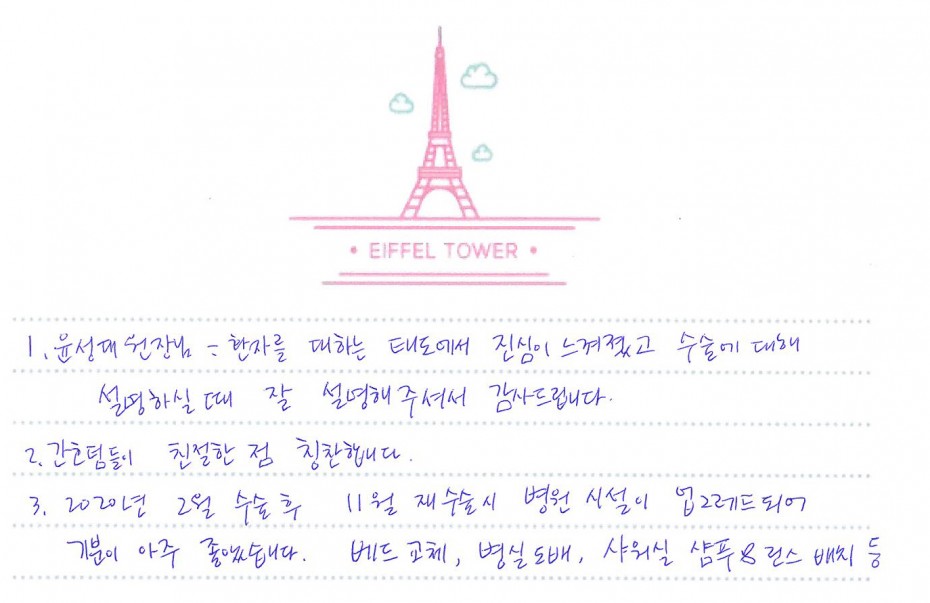 • EIFFEL TOWER •
1. 윤성대 원장님 - 환자를 대하는 태도에서 진심이 느껴졌고 수술에 대해
설명하실 때 잘 설명해 주셔서 감사드립니다.
2. 간호팀들이 친절한 점 칭찬합니다.
3. 2020년 2월 수술 후 11월 재수술시 병원 시설이 업그레드되어
기분이 아주 좋았습니다. 베드 교체, 병실도배, 샤워실 샴푸&린스 배치 등